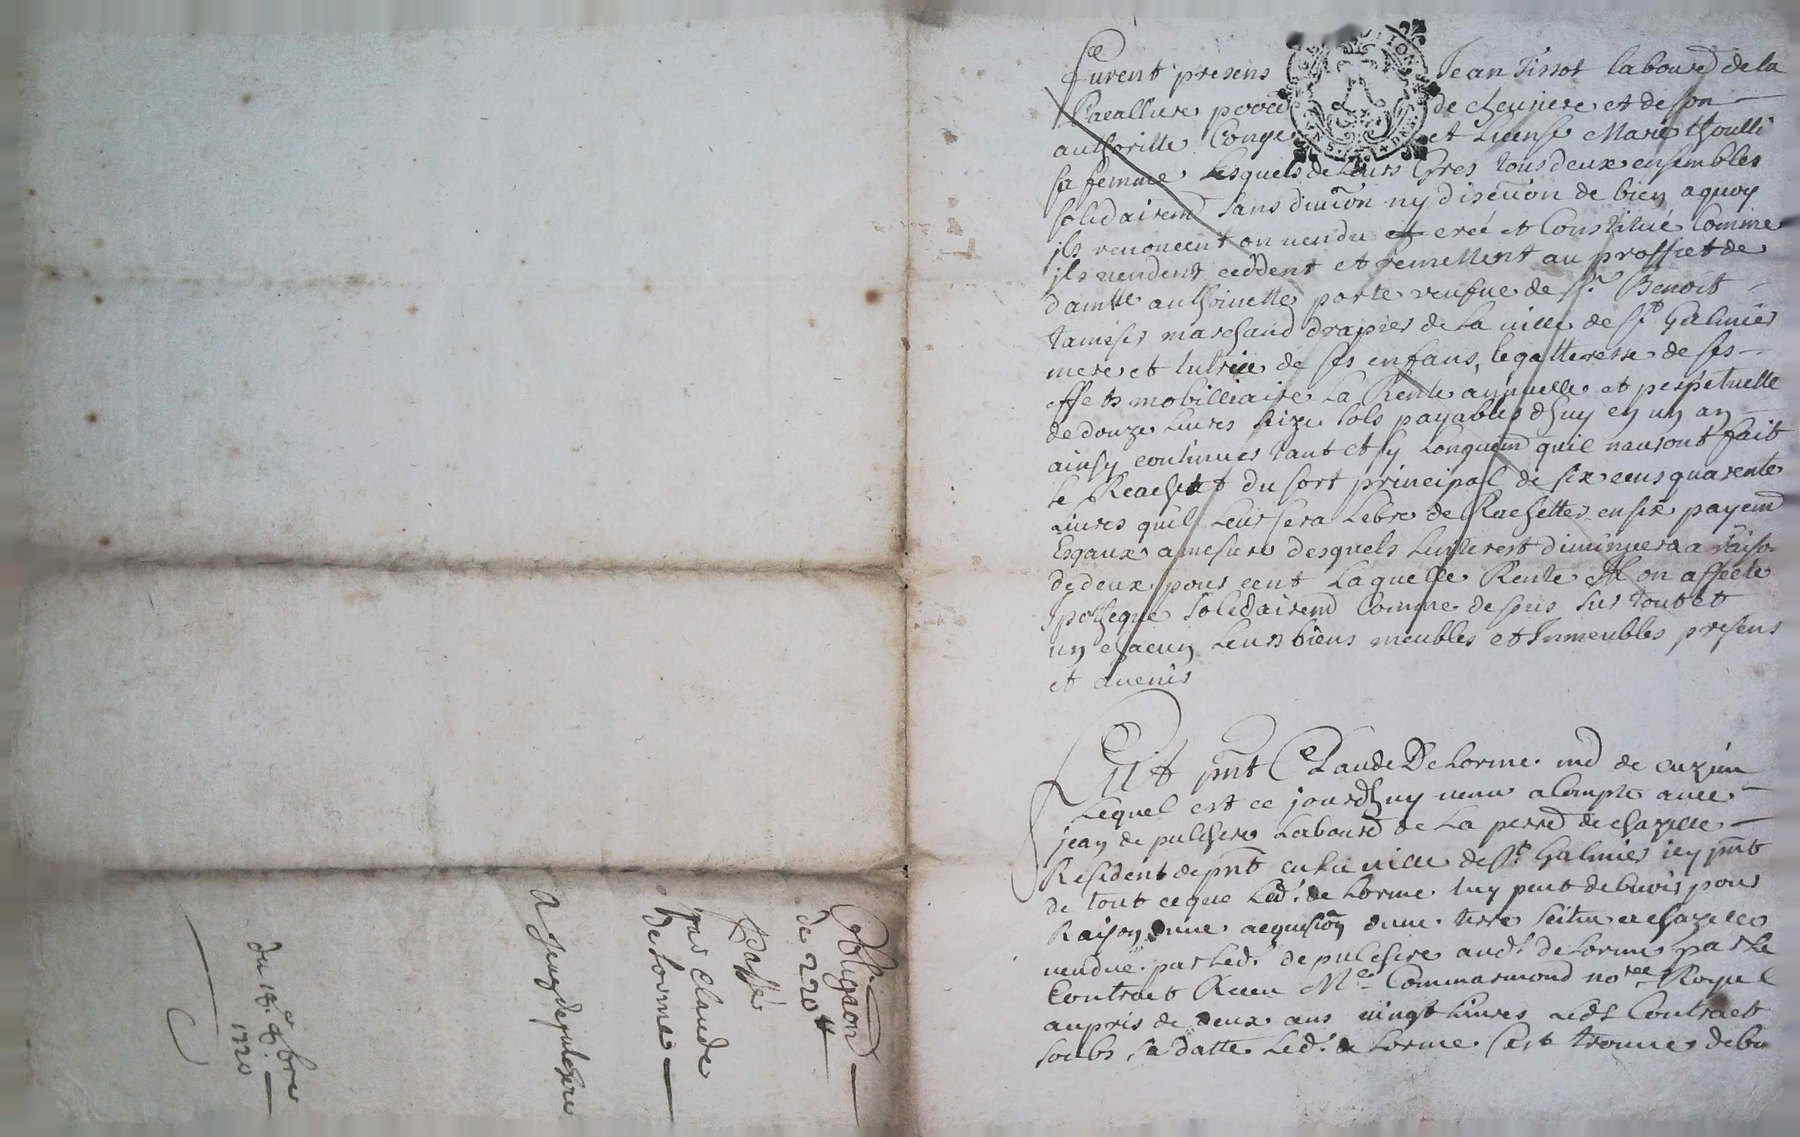 furent presens Jean Tissot labour de la
authorille Conge et License Marie
sa femme Lesquels de Leurs Gres tous deux ensembles
solidairemt sans division ny discution de bien aquoy
ils renoncent on vendu et creé et Constitué Comme
ils vendent ceddent et remettent au proffict de
damlle anthoinette porte veufue de sr Benoit
marchand drapier de La ville de St Galmier
mere et tutrice de ses enfans, legatteresse de ses
effets mobilliaire La Rente annuelle et perpetuelle
de douze Livres seize sols payables d'huy en un an
ainsy continuer tant et sy Longuemt quil nauront fait
le Reachept du sort principal de six cens quarente
Livres quil Leur sera Libre de Rachetter en six payemt
Esgaux amesure desquels Linterest diminuera a raiso
de deux pour cent Laquelle Rente Ils on affecte
ypotheque solidairemt Comme dessus sur tout et
un chacun Leurs biens meubles et Inmeubles presens
et avenir
Fut pnt Claude DeLorme md de cuzieu
Lequel est ce jourdhuy venu a Compte avec
jean de pulchere Laboure de La
Resident de pnt en La ville de St Galmier icy pnt
de tout ceque Led. de Lorme luy peut debvoir pour
Raison dune aquision dune terre scitue a chazelle
vendue par Led. de pulchere aud. de Lorme par Le
Contract Receu Me Commarmond nore Royal
au pris de deux cens vingt Livres Led. Contract
soubs sa datte Led. de Lorme sest trouver debv
Obligaon
de 220 lt
Passé
par Claude
de Lorme
A Jean depulchere
du 18e 8bre
1720